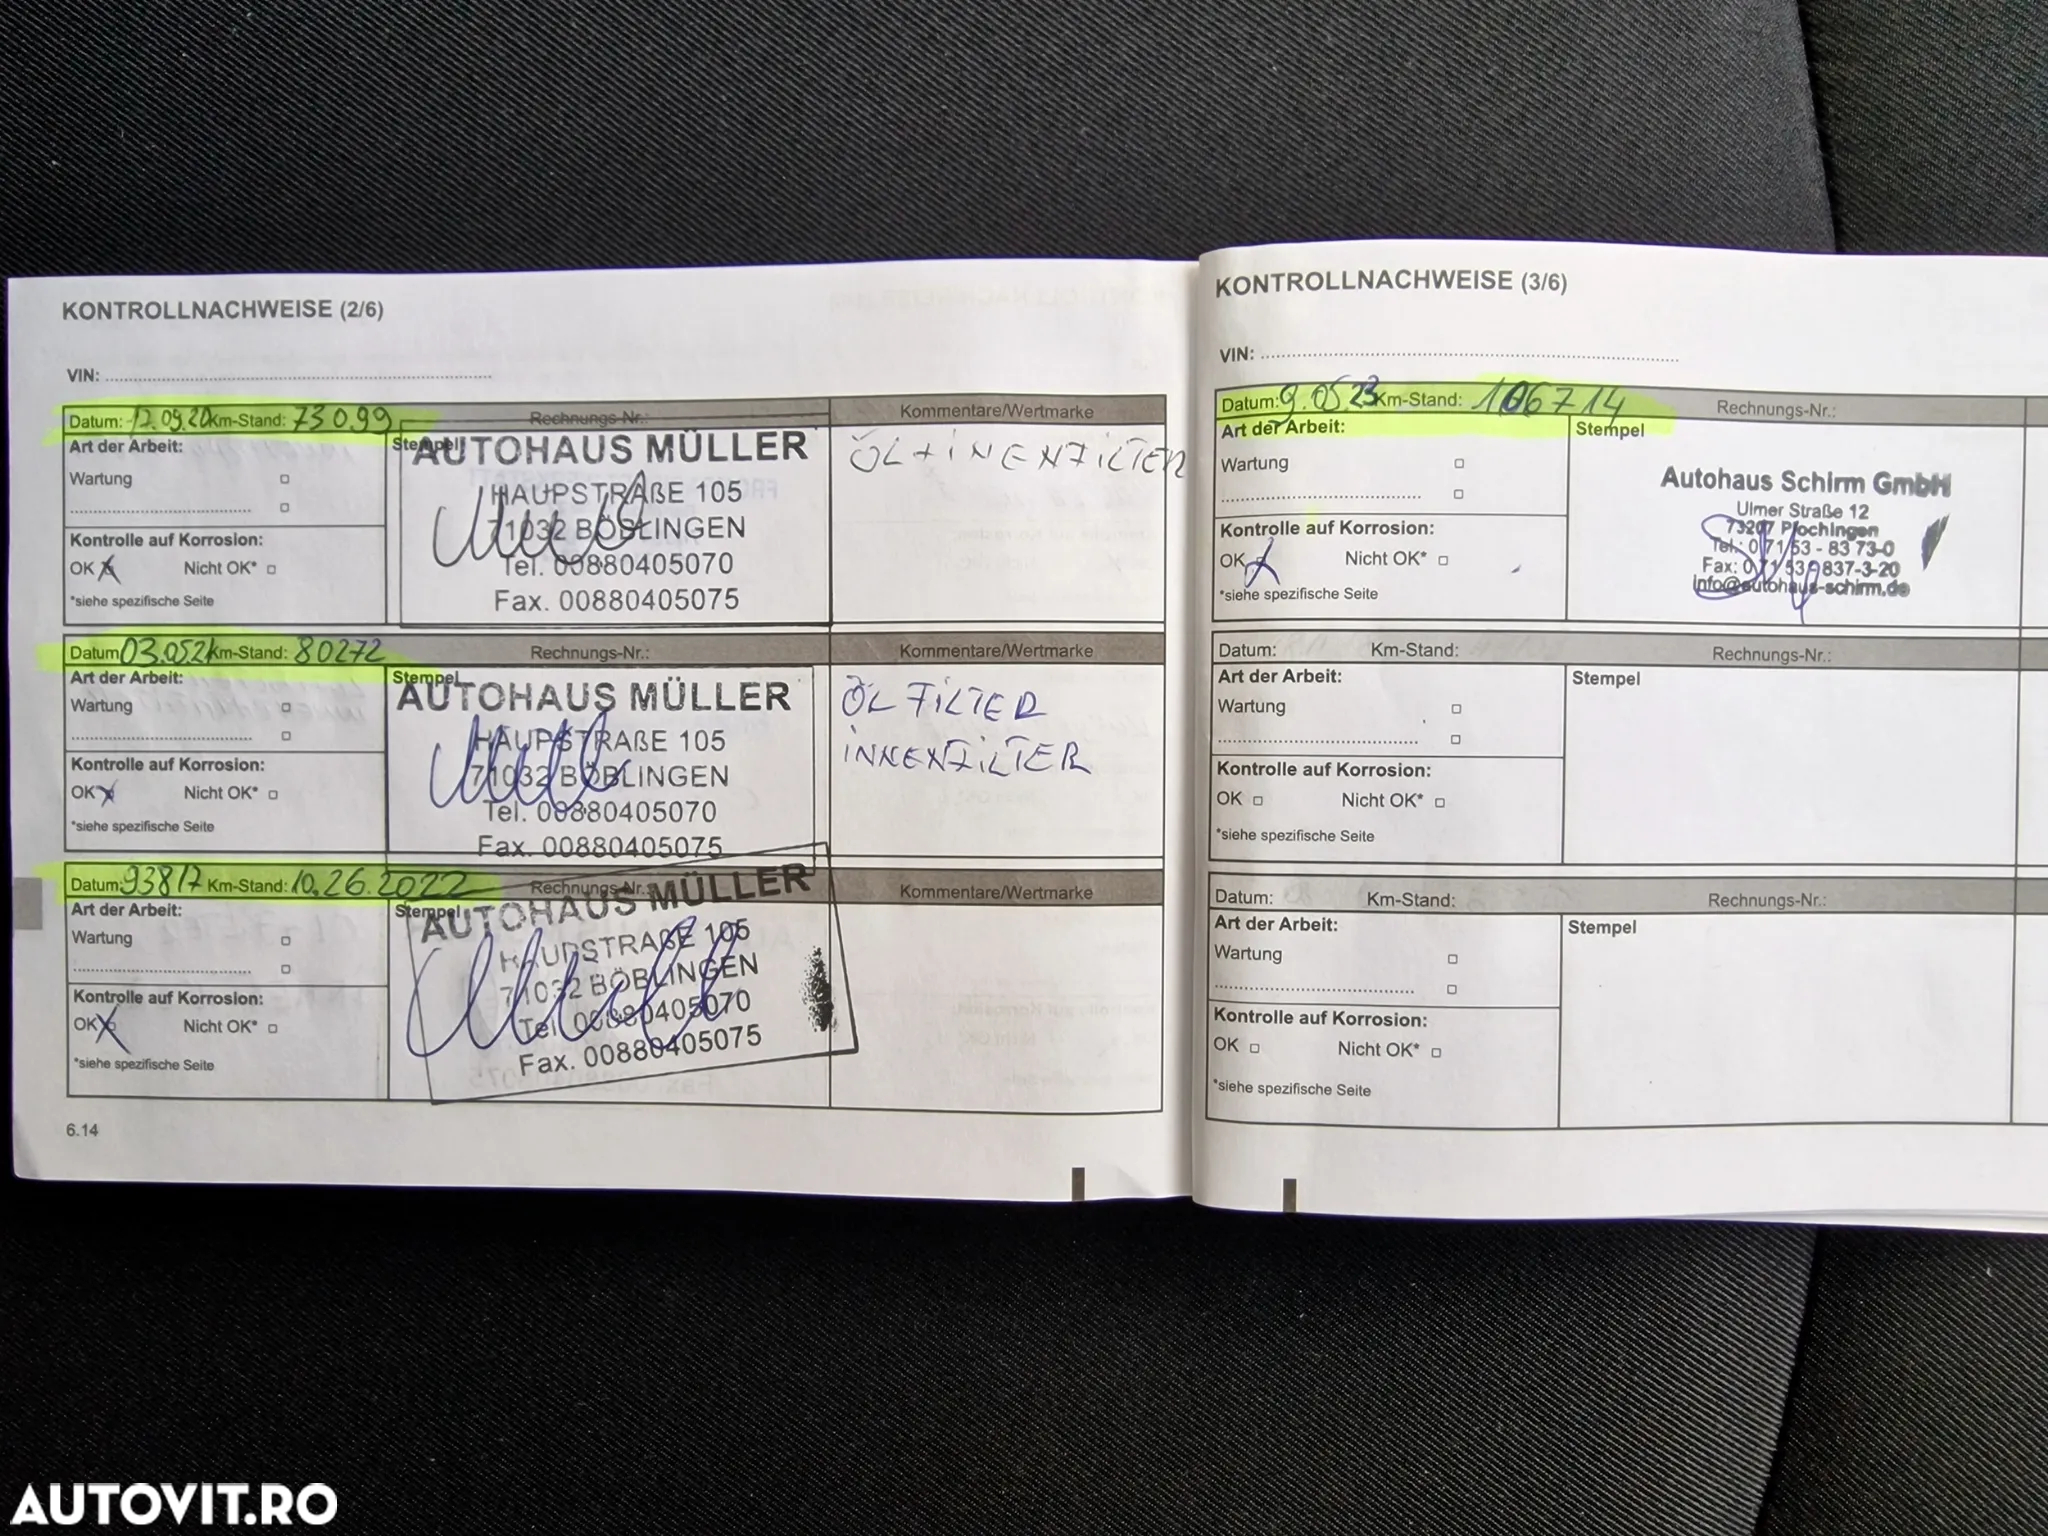 KONTROLLNACHWEISE (2/6)
VIN:
Datum: 17.09.20 Km-Stand: 73099 Rechnungs-Nr.: Kommentare/Wertmarke
Art der Arbeit: Stempel
Wartung
AUTOHAUS MÜLLER
HAUPSTRAßE 105
71032 BÖBLINGEN
Tel. 00880405070
Fax. 00880405075
ÖL + INENFILTER
Kontrolle auf Korrosion:
OK Nicht OK*
*siehe spezifische Seite
Datum: 03.05.21 Km-Stand: 80272 Rechnungs-Nr.: Kommentare/Wertmarke
Art der Arbeit: Stempel
Wartung
AUTOHAUS MÜLLER
HAUPSTRAßE 105
71032 BÖBLINGEN
Tel. 00880405070
Fax. 00880405075
ÖL FILTER
INNENFILTER
Kontrolle auf Korrosion:
OK Nicht OK*
*siehe spezifische Seite
Datum: 93817 Km-Stand: 10.26.2022 Rechnungs-Nr.: Kommentare/Wertmarke
Art der Arbeit: Stempel
Wartung
AUTOHAUS MÜLLER
HAUPSTRAßE 105
71032 BÖBLINGEN
Tel. 00880405070
Fax. 00880405075
Kontrolle auf Korrosion:
OK Nicht OK*
*siehe spezifische Seite
6.14
KONTROLLNACHWEISE (3/6)
VIN:
Datum: 9.05.23 Km-Stand: 106714 Rechnungs-Nr.:
Art der Arbeit: Stempel
Wartung
Autohaus Schirm GmbH
Ulmer Straße 12
73207 Plochingen
Tel.: 0 71 53 - 83 73-0
Fax: 0 71 53 - 837-3-20
info@autohaus-schirm.de
Kontrolle auf Korrosion:
OK Nicht OK*
*siehe spezifische Seite
Datum: Km-Stand: Rechnungs-Nr.:
Art der Arbeit: Stempel
Wartung
Kontrolle auf Korrosion:
OK Nicht OK*
*siehe spezifische Seite
Datum: Km-Stand: Rechnungs-Nr.:
Art der Arbeit: Stempel
Wartung
Kontrolle auf Korrosion:
OK Nicht OK*
*siehe spezifische Seite
AUTOVIT.RO